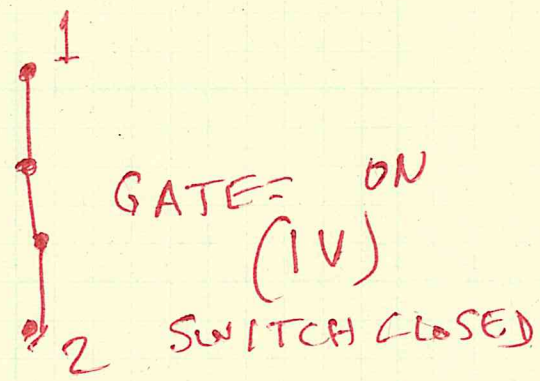 1
GATE= ON
(1V)
2 SWITCH CLOSED